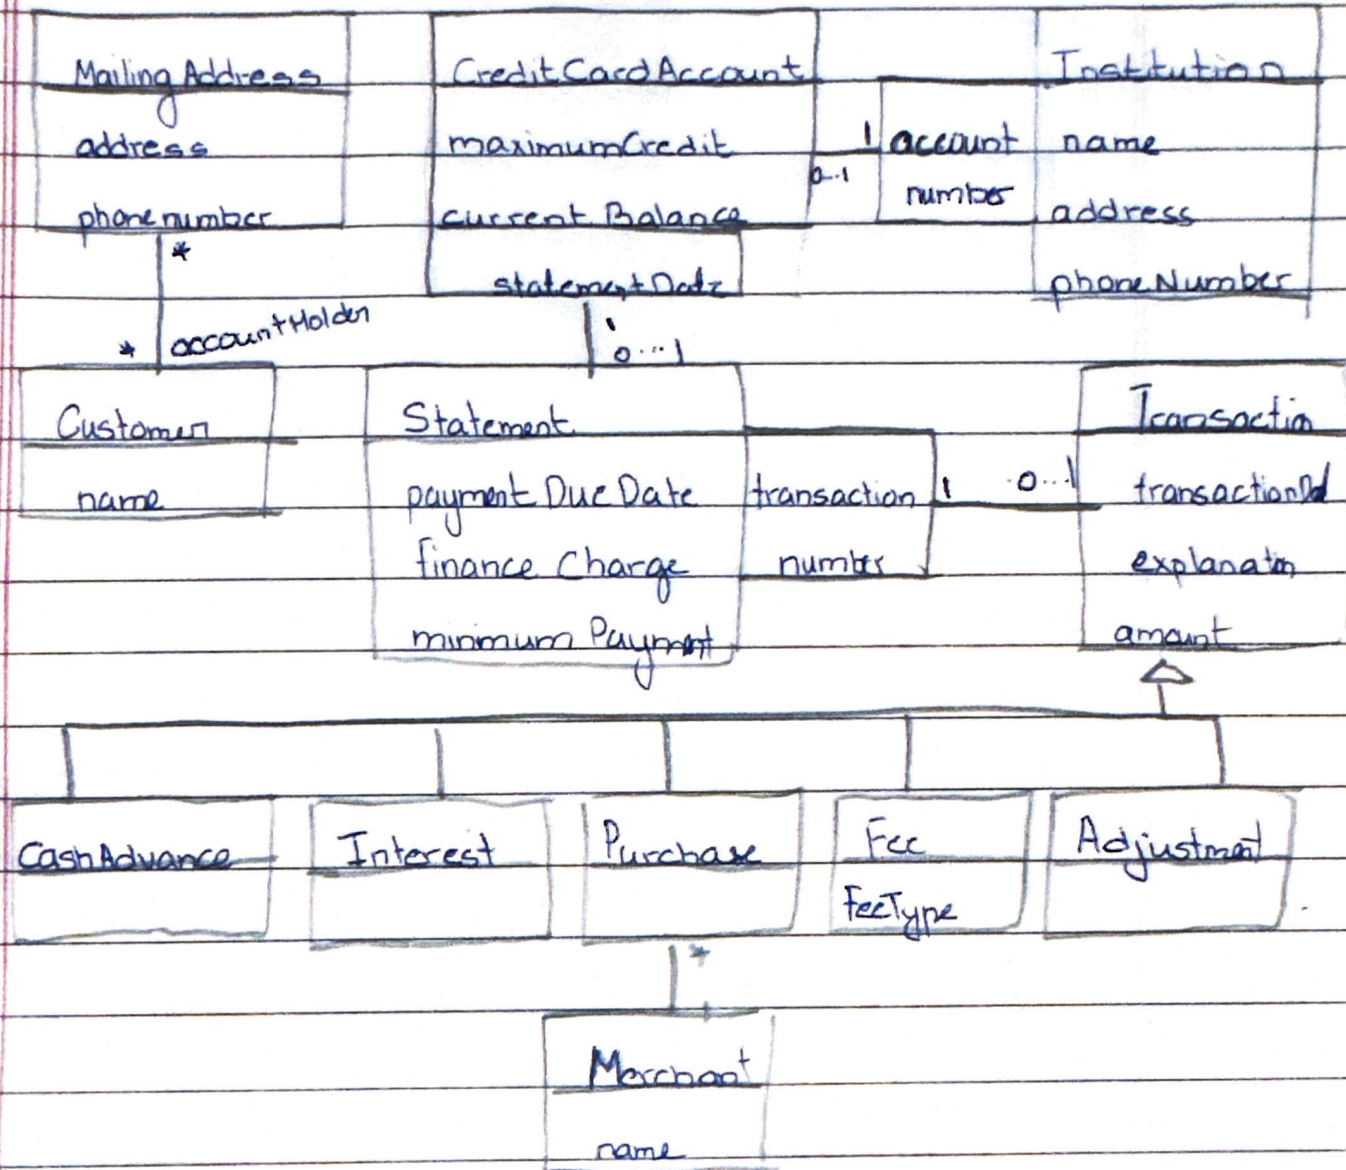 Mailing Address
address
phone number
*
accountHolder
*
CreditCardAccount
maximumCredit
current Balance
statementDate
1
0..1
account
number
Institution
name
address
phoneNumber
0...1
Customer
name
Statement
payment Due Date
finance Charge
minimum Payment
transaction
number
1 0...1
Transaction
transactionId
explanation
amount
CashAdvance
Interest
Purchase
Fee
FeeType
Adjustment
*
Merchant
name